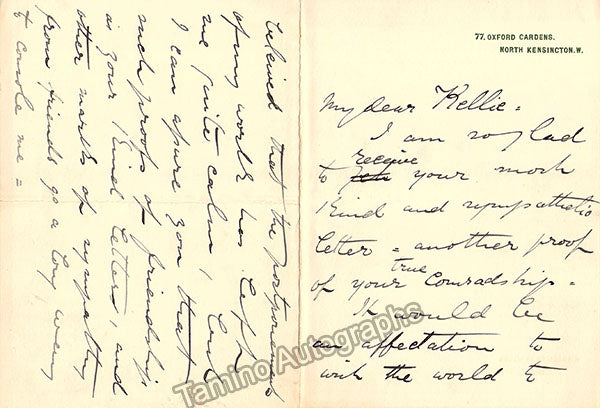 77, OXFORD GARDENS.
NORTH KENSINGTON. W.
My dear Kellie =
I am so glad
receive
to your most
kind and sympathetic
letter = another proof
true
of your Comradship =
It would be
an affectation to
wish the world to
beleived that the postponement
of my work has left
me quite calm, but
I can assure you that
such proofs of friendship
as your kind letters, and
other marks of sympathy
from friends go a long way
to console me =
Tamino Autographs